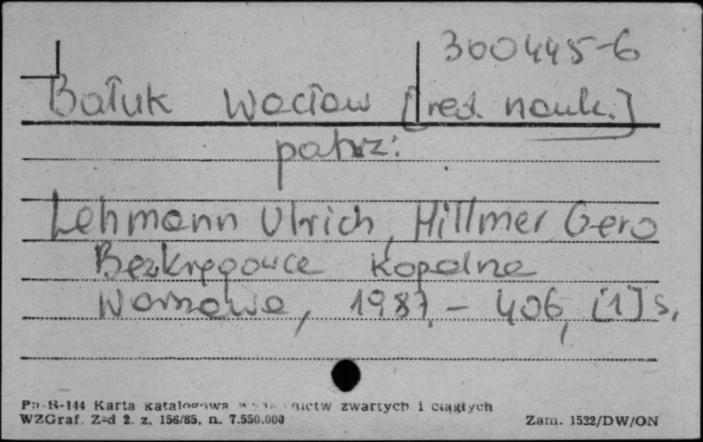 300445-6
Bałuk Wacław [red. nauk.]
patrz:
Lehmann Ulrich, Hillmer Gero
Bezkręgowce kopalne
Warszawa, 1987. - 406, [1] s.
Pu-R-144 Karta katalogowa wydawnictw zwartych i ciągłych
WZGraf. Z-d 2. z. 156/85, n. 7.550.000
Zam. 1522/DW/ON